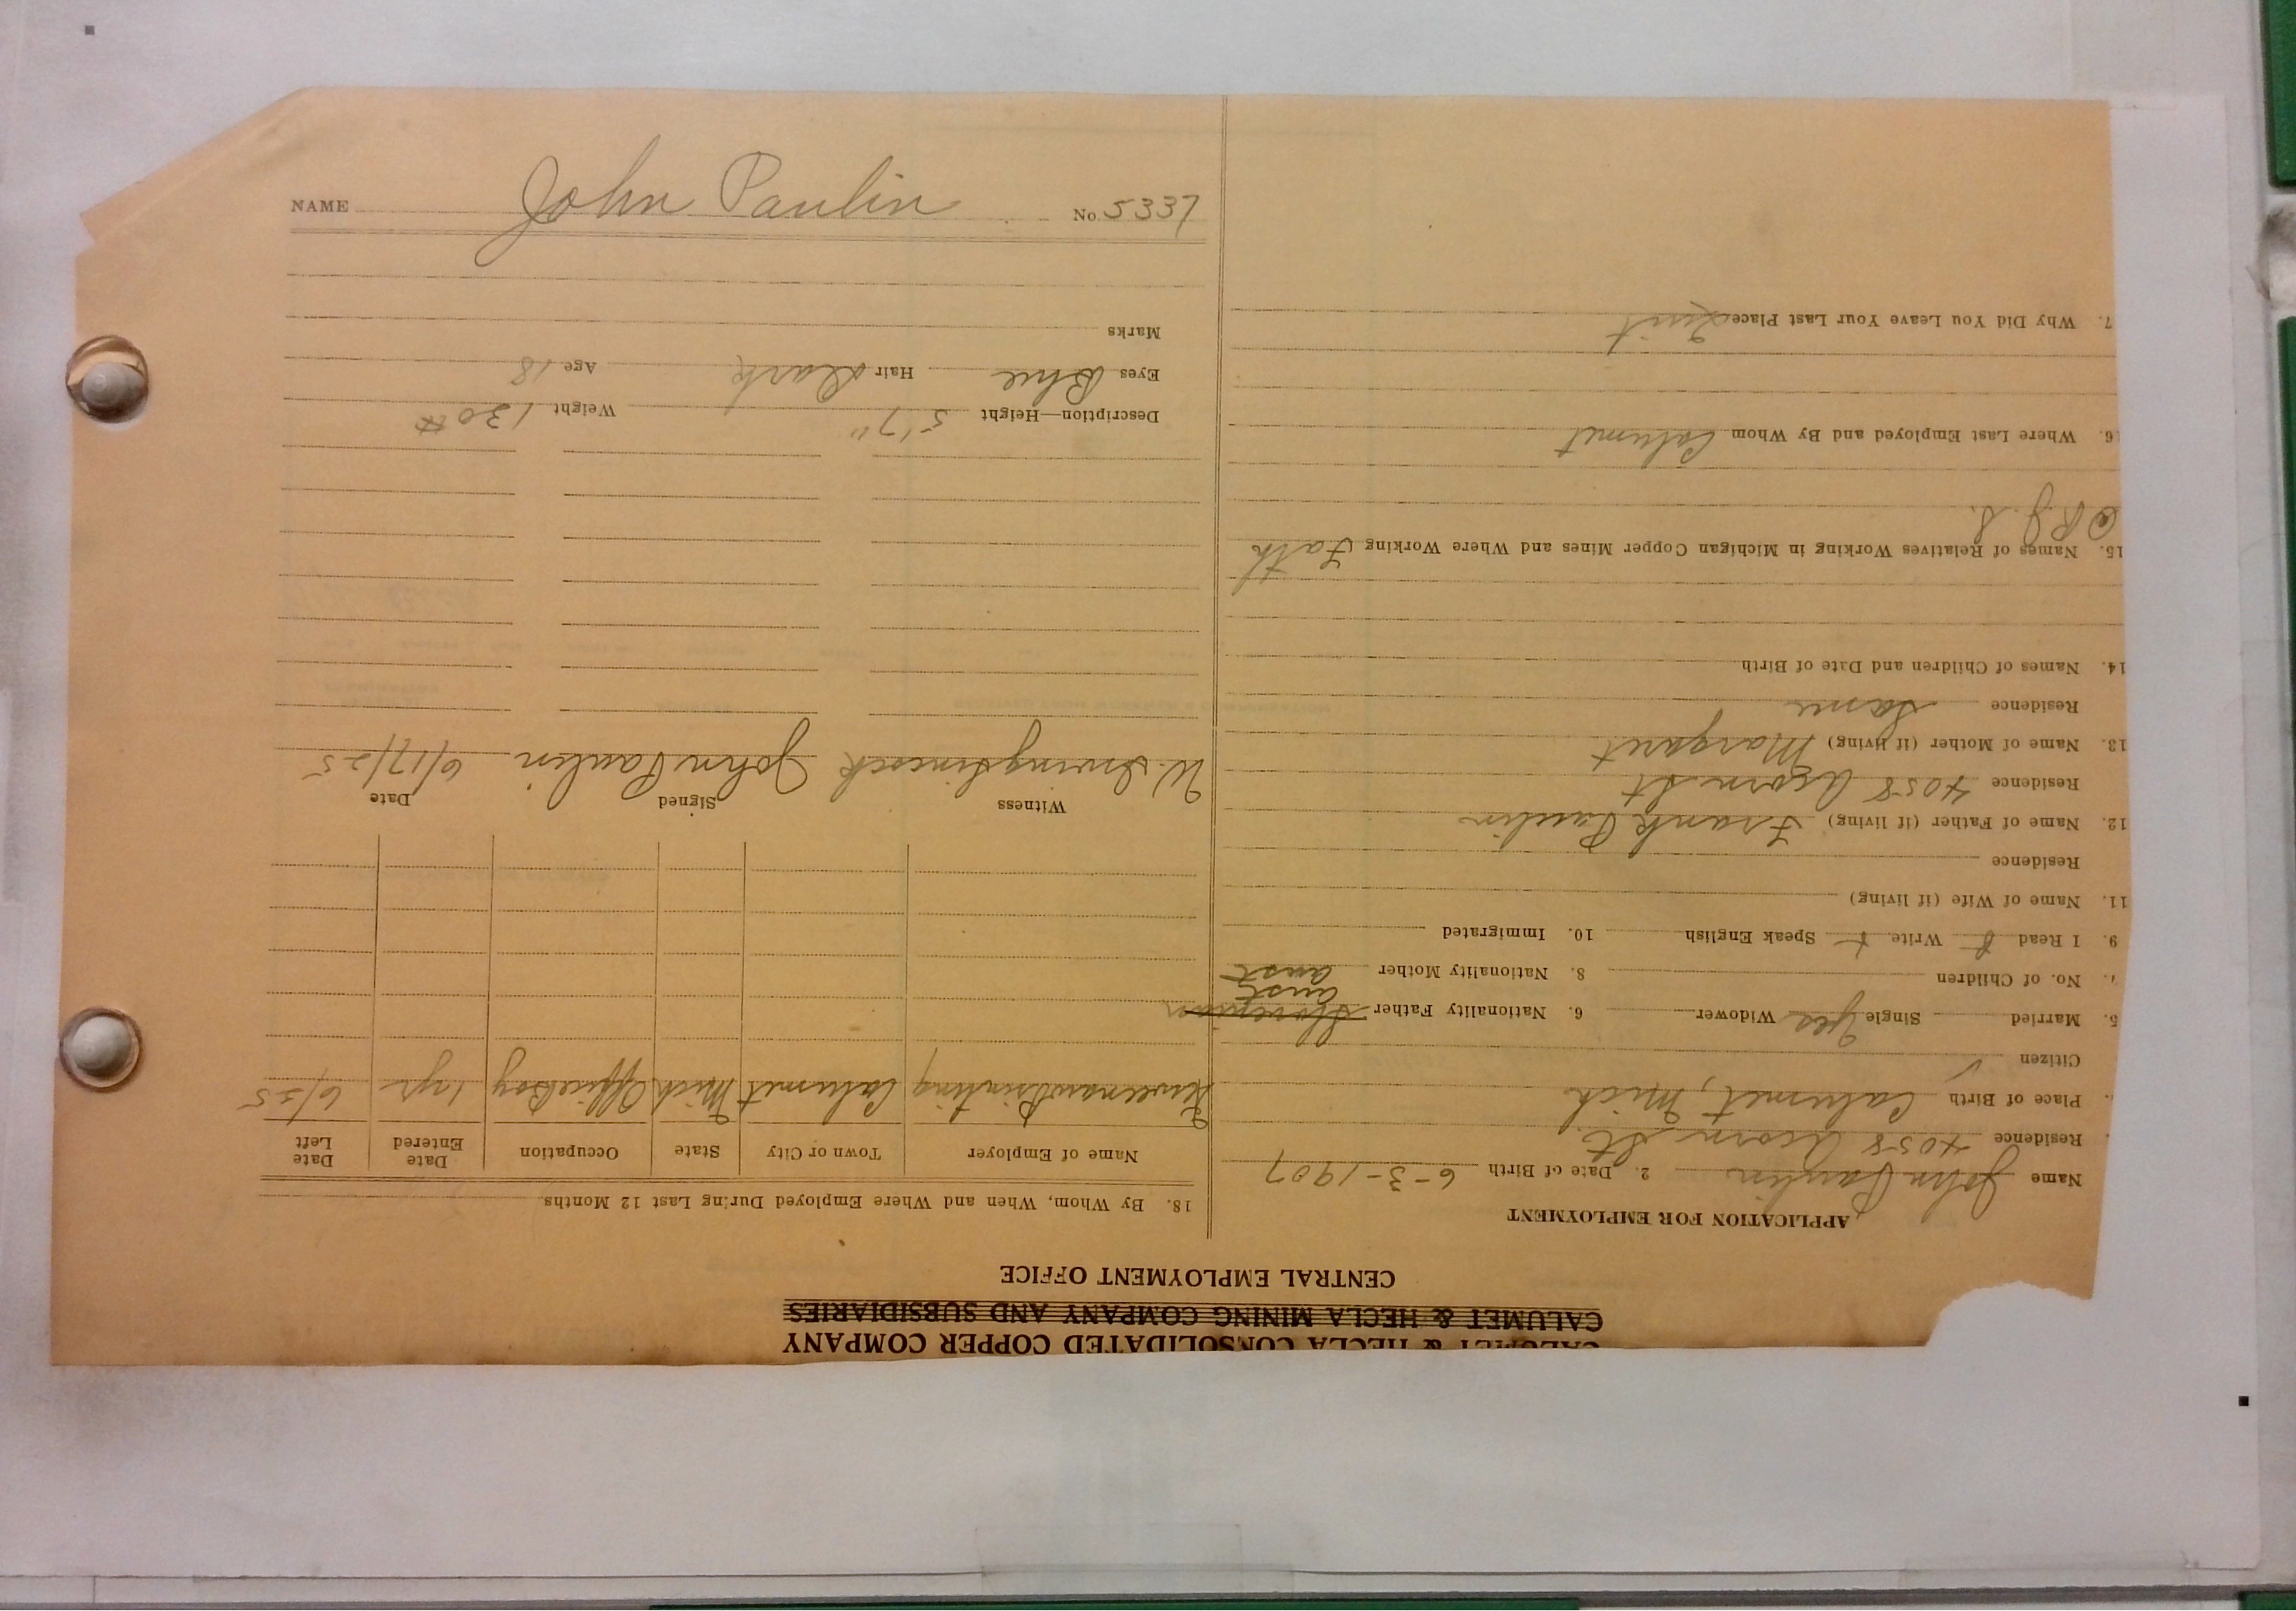 CALUMET & HECLA CONSOLIDATED COPPER COMPANY
CALUMET & HECLA MINING COMPANY AND SUBSIDIARIES
CENTRAL EMPLOYMENT OFFICE
APPLICATION FOR EMPLOYMENT
Name John Paulin 2. Date of Birth 6-3-1907
Residence 4058 Acorn St.
Place of Birth Calumet, Mich
Citizen ✓
5. Married Single Yes Widower 6. Nationality Father Slovenian Aust
7. No. of Children 8. Nationality Mother Aust
9. I Read Write Speak English 10. Immigrated
11. Name of Wife (if living)
Residence
12. Name of Father (if living) Frank Paulin
Residence 4058 Acorn St
13. Name of Mother (if living) Margaret
Residence Same
14. Names of Children and Date of Birth
15. Names of Relatives Working in Michigan Copper Mines and Where Working Fath
@ R.J.S.
16. Where Last Employed and By Whom Calumet
7. Why Did You Leave Your Last Place Quit
18. By Whom, When and Where Employed During Last 12 Months
Name of Employer Town or City State Occupation Date Entered Date Left
Keweenaw Printing Calumet Mich Office Boy 1 yr 6/25
Witness Signed Date
W. Irving Simcock John Paulin 6/17/25
Description—Height 5'7" Weight 130 #
Eyes Blue Hair Dark Age 18
Marks
NAME John Paulin No. 5337